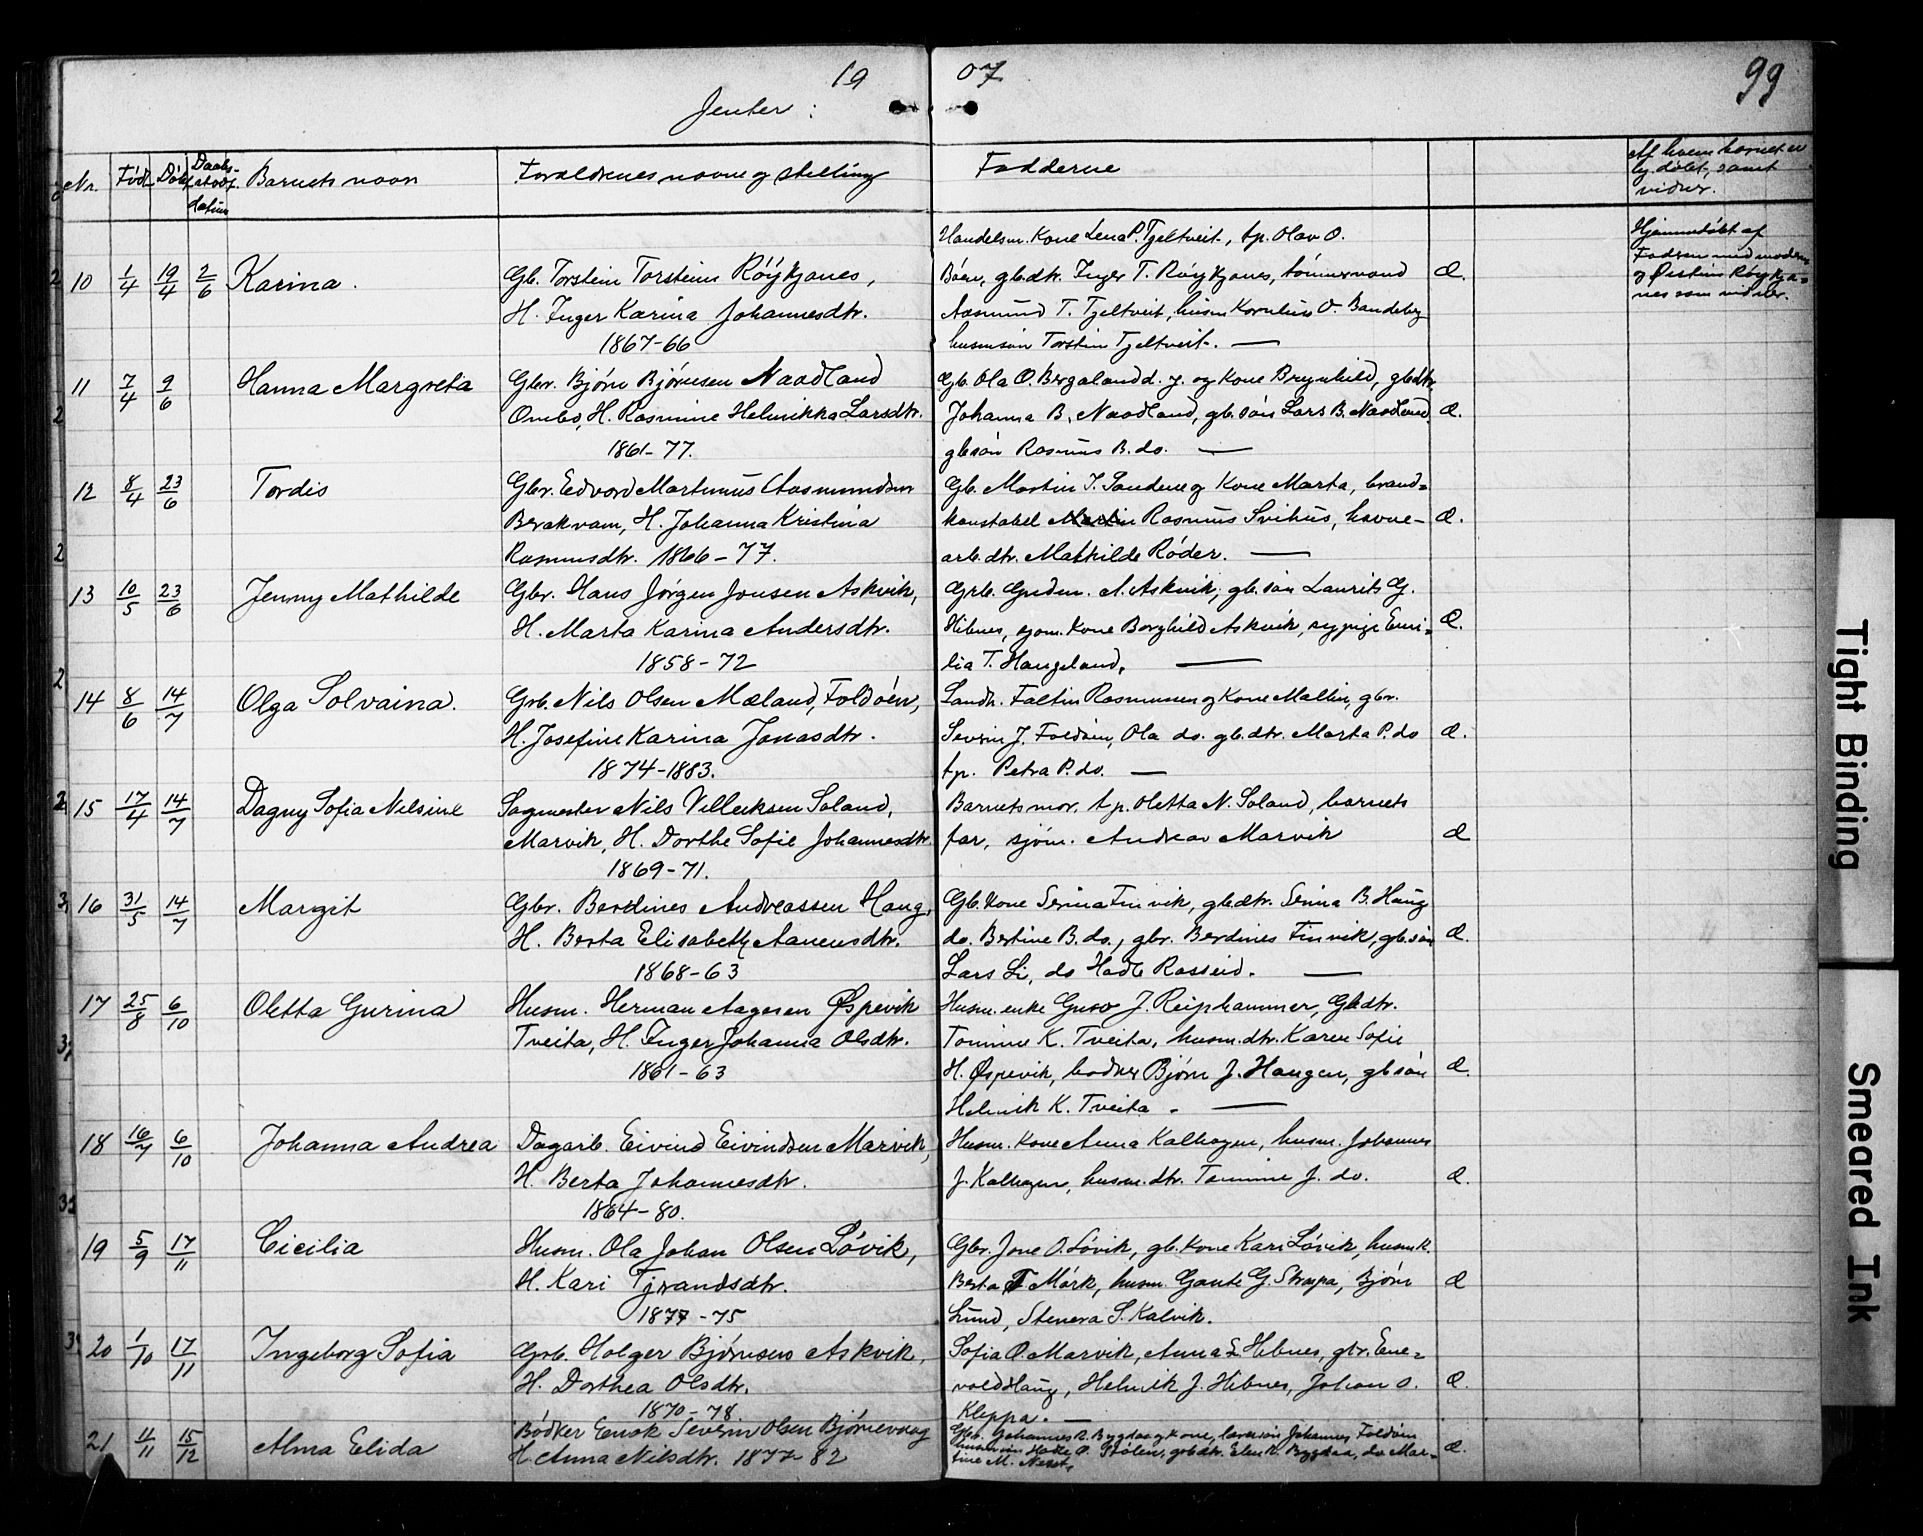 19 07 99
Jenter:
Nr. Född Döbt Daabs- datum Barnets navn Forældrenes navne og stilling Fadderne Af hvem barnet er hj.döbt, samt vidner.
10 1/4 19/4 2/6 Karina. Gb. Torstein Torsteins Röykjanes,
H. Inger Karina Johannesdtr.
1867-66
Handelsm. Kone Lena P. Tjeltveit, tp. Olav O.
Böen, gb.dtr. Inger T. Röykjanes, tömmermand Æ.
Aasmund T. Tjeltveit, husm Kornelius O. Bandeberg
husmsön Torstin Tjeltveit. —
Hjemmedöbt af
Fadren med modren
og Öistein Röykja=
nes som vidner.
11 7/4 9/6 Hanna Margreta Gbr. Björn Björnsen Naadland
Ombo, H. Rasmine Helmikka Larsdtr.
1861-77.
Gb. Ola O. Bergaland d. y. og Kone Brynhild, gbdtr.
Johanna B. Naadland, gb.sön Lars B. Naadland Æ.
gbsön Rasmus B. do. —
12 8/4 23/6 Tordis Gbr. Edvard Martinius Aasmundsen
Berakvam, H. Johanna Kristina
Rasmusdtr. 1866-77.
Gb. Martin J. Sandene og Kone Marta, brand=
konstabel Rasmus Svihus, havne- Æ.
arb.dtr. Mathilde Röder. —
13 10/5 23/6 Jenny Mathilde Gbr. Hans Jörgen Jonsen Askvik,
H. Marta Karina Andersdtr.
1858-72
Grb. Gudm. A. Askvik, gb.sön Laurits G.
Hibnes, sjom. Kone Borghild Askvik, sypige Emi= Æ.
lia T. Haugeland. —
14 8/6 14/7 Olga Solvaina. Grb. Nils Olsen Mæland, Foldöen,
H. Josefine Karina Jonasdtr.
1874-1883.
Landh. Faltin Rasmussen og Kone Mallin, gbr.
Severin J. Foldöen, Ola do. gb.dtr. Marta P. do Æ.
tp. Petra P. do. —
15 17/4 14/7 Dagny Sofia Nilsine Sagmester Nils Villeiksen Saland,
Marvik, H. Dorthe Sofie Johannesdtr
1869-71.
Barnets mor, tp. Oletta N. Saland, barnets
far, sjöm. Andreas Marvik Æ
16 31/5 14/7 Margit Gbr. Berdines Andreassen Haug,
H. Berta Elisabeth Aanensdtr.
1868-63
Gb. Kone Serina Finvik, gbdtr. Serina B. Haug
do. Bertine B. do., gbr. Berdines Finvik, gb.sön Æ.
Lars Li, do Hadle Rasseid. —
17 25/8 6/10 Oletta Gurina Husm. Herman Aagesen Øspevik
Tveita, H. Inger Johanna Olsdtr.
1861-63
Husm. enke Guro J. Reiphammer, Gbdtr.
Tomine K. Tveita, husm.dtr. Karen Sofie
H. Øspevik, bödker Björn J. Haugen, gbsön Æ.
Helmik K. Tveita. —
18 16/7 6/10 Johanna Andrea Dagarb. Eivind Eivindsen Marvik,
H. Berta Johannesdtr.
1864-80.
Husm. Kone Anna Kalhagen, husm. Johannes
J. Kalhagen, husm.dtr. Tomine J. do. Æ.
19 5/9 17/11 Cicilia Husm. Ola Johan Olsen Lövik,
H. Kari Tjerandsdtr.
1877-75
Gbr. Jone O. Lövik, gb. Kone Kari Lövik, husm K.
Berta T Mörk, husm. Gaute G. Strapa, Björn Æ
Lund, Stenera S. Kalvik.
20 1/10 17/11 Ingeborg Sofia Grb. Holger Björnsen Askvik,
H. Dorthea Olsdtr.
1870-78.
Sofia O. Marvik, Anna L. Hibnes, gbr. Ene=
vold Haug, Helmik J. Hibnes, Johan O. Æ.
Kleppa. —
21 11/11 15/12 Alma Elida Bödker Enok Severin Olsen Björnevaag
H. Anna Nilsdtr. 1877-82
Gbr. Johannes R. Bygdaa og Kone, lærersön Johannes Foldöen
husmsön Hadle O. Stölen, gbdtr. Elen R. Bygdaa, do Mar= Æ.
tine M. Neset.
Tight Binding
Smeared Ink